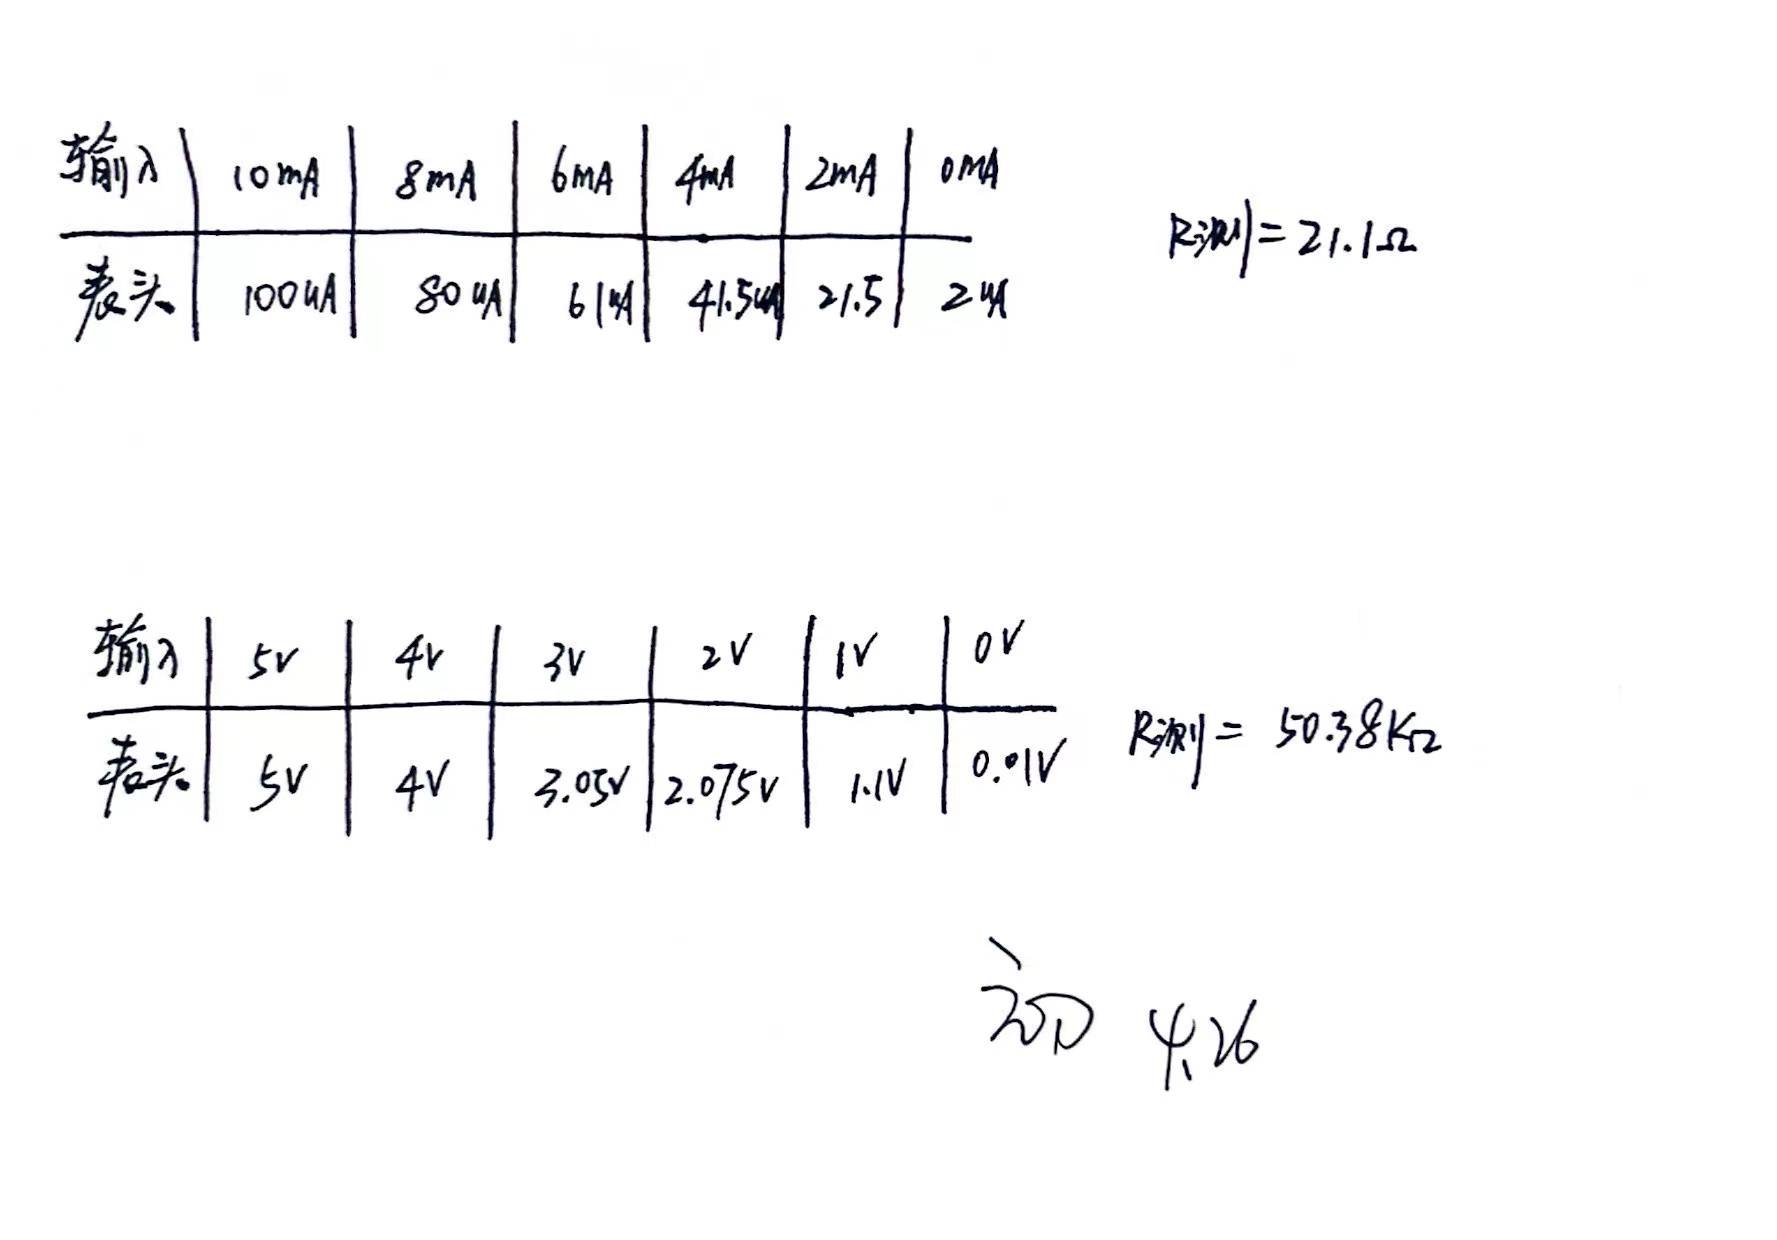 输入 10mA 8mA 6mA 4mA 2mA 0mA
表头 100uA 80uA 61uA 41.5uA 21.5 2uA
R测=21.1Ω
输入 5V 4V 3V 2V 1V 0V
表头 5V 4V 3.05V 2.075V 1.1V 0.01V
R测= 50.38KΩ
4.26